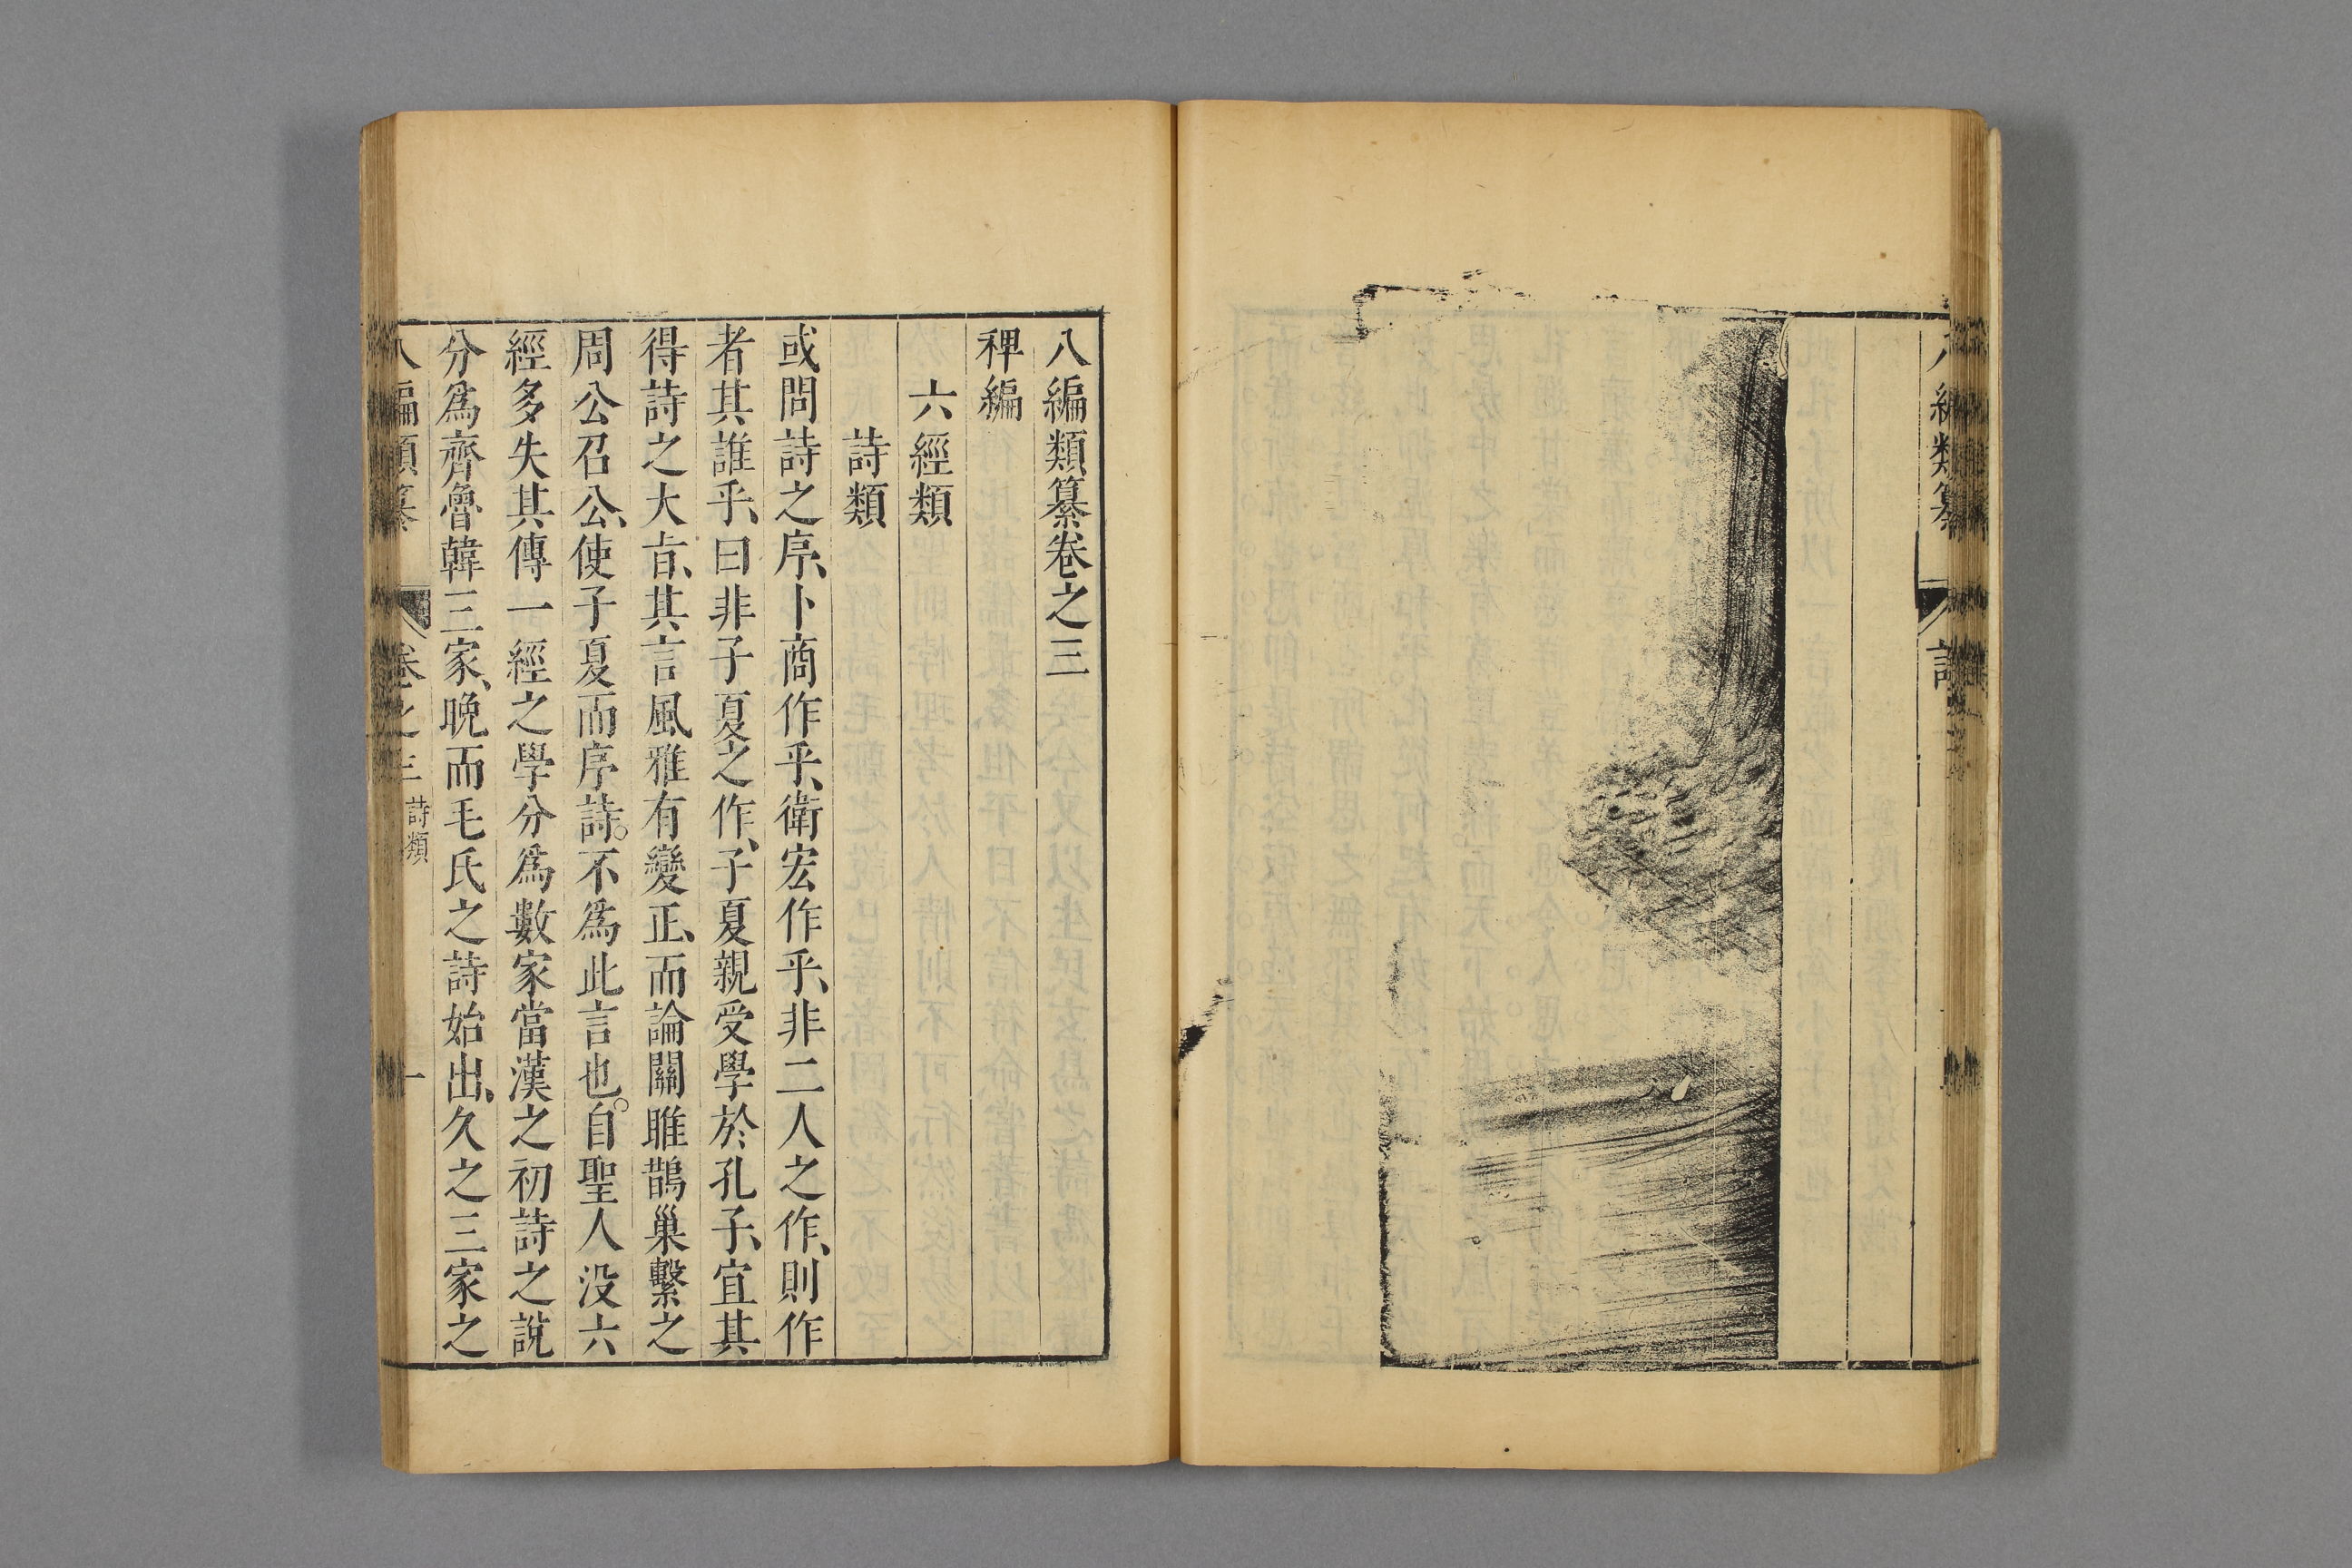 編類纂
八編類纂卷之三
稗編
六經類
詩類
或問詩之序、卜商作乎、衛宏作乎、非二人之作、則作
者其誰乎、曰非子夏之作、子夏親受學於孔子、宜其
得詩之大㫖、其言風雅有變正、而論關雎鵲巢繫之
周公召公、使子夏而序詩。不爲此言也。自聖人没六
經多失其傳一經之學分爲數家當漢之初詩之說
分爲齊魯韓三家、晚而毛氏之詩始出、久之三家之
八編類纂 卷之三 詩類 一